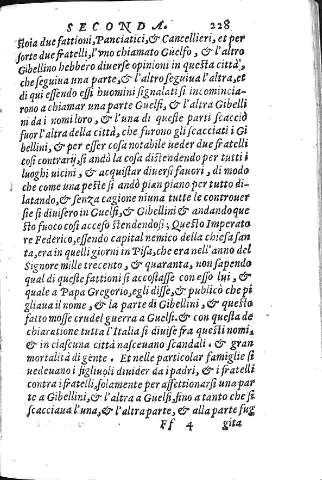 SECONDA. 228
stoia due fattioni, Panciatici, & Cancellieri, et per
sorte due fratelli, l'vno chiamato Guelfo, & l'altro
Gibellino hebbero diuerse opinioni in questa città,
che seguiua una parte, & l'altro seguiua l'altra, et
di qui essendo essi huomini segnalati si incomincia-
rono a chiamar una parte Guelfi, & l'altra Gibelli
ni da i nomi loro, & l'una di queste parti scacciò
fuor l'altra della città, che furono gli scacciati i Gi
bellini, & per esser cosa notabile ueder due fratelli
cosi contrarij, si andò la cosa distendendo per tutti i
luoghi uicini, & acquistar diuersi fauori, di modo
che come una peste si andò pian piano per tutto di-
latando, & senza cagione niuna tutte le controuer
sie si diuisero in Guelfi, & Gibellini & andando que
sto fuoco cosi acceso stendendosi; Questo Imperato
re Federico, essendo capital nemico della chiesa san
ta, era in quelli giorni in Pisa, che era nell'anno del
Signore mille trecento, & quaranta, non sapendo
qual di queste fattioni si accostasse con esso lui, &
quale a Papa Gregorio, egli disse, & publicò che pi
gliaua il nome, & la parte di Gibellini, & questo
fatto mosse crudel guerra a Guelfi. & con questa de
chiaratione tutta l'Italia si diuise fra questi nomi,
& in ciascuna città nasceuano scandali & gran
mortalità di gente. Et nelle particolar famiglie si
uedeuano i figliuoli diuider da i padri, & i fratelli
contra i fratelli, solamente per affettionarsi una par
te a Gibellini, & l'altra a Guelfi, sino a tanto che si
scacciaua l'una, & l'altra parte, & alla parte fug
Ff 4 gita